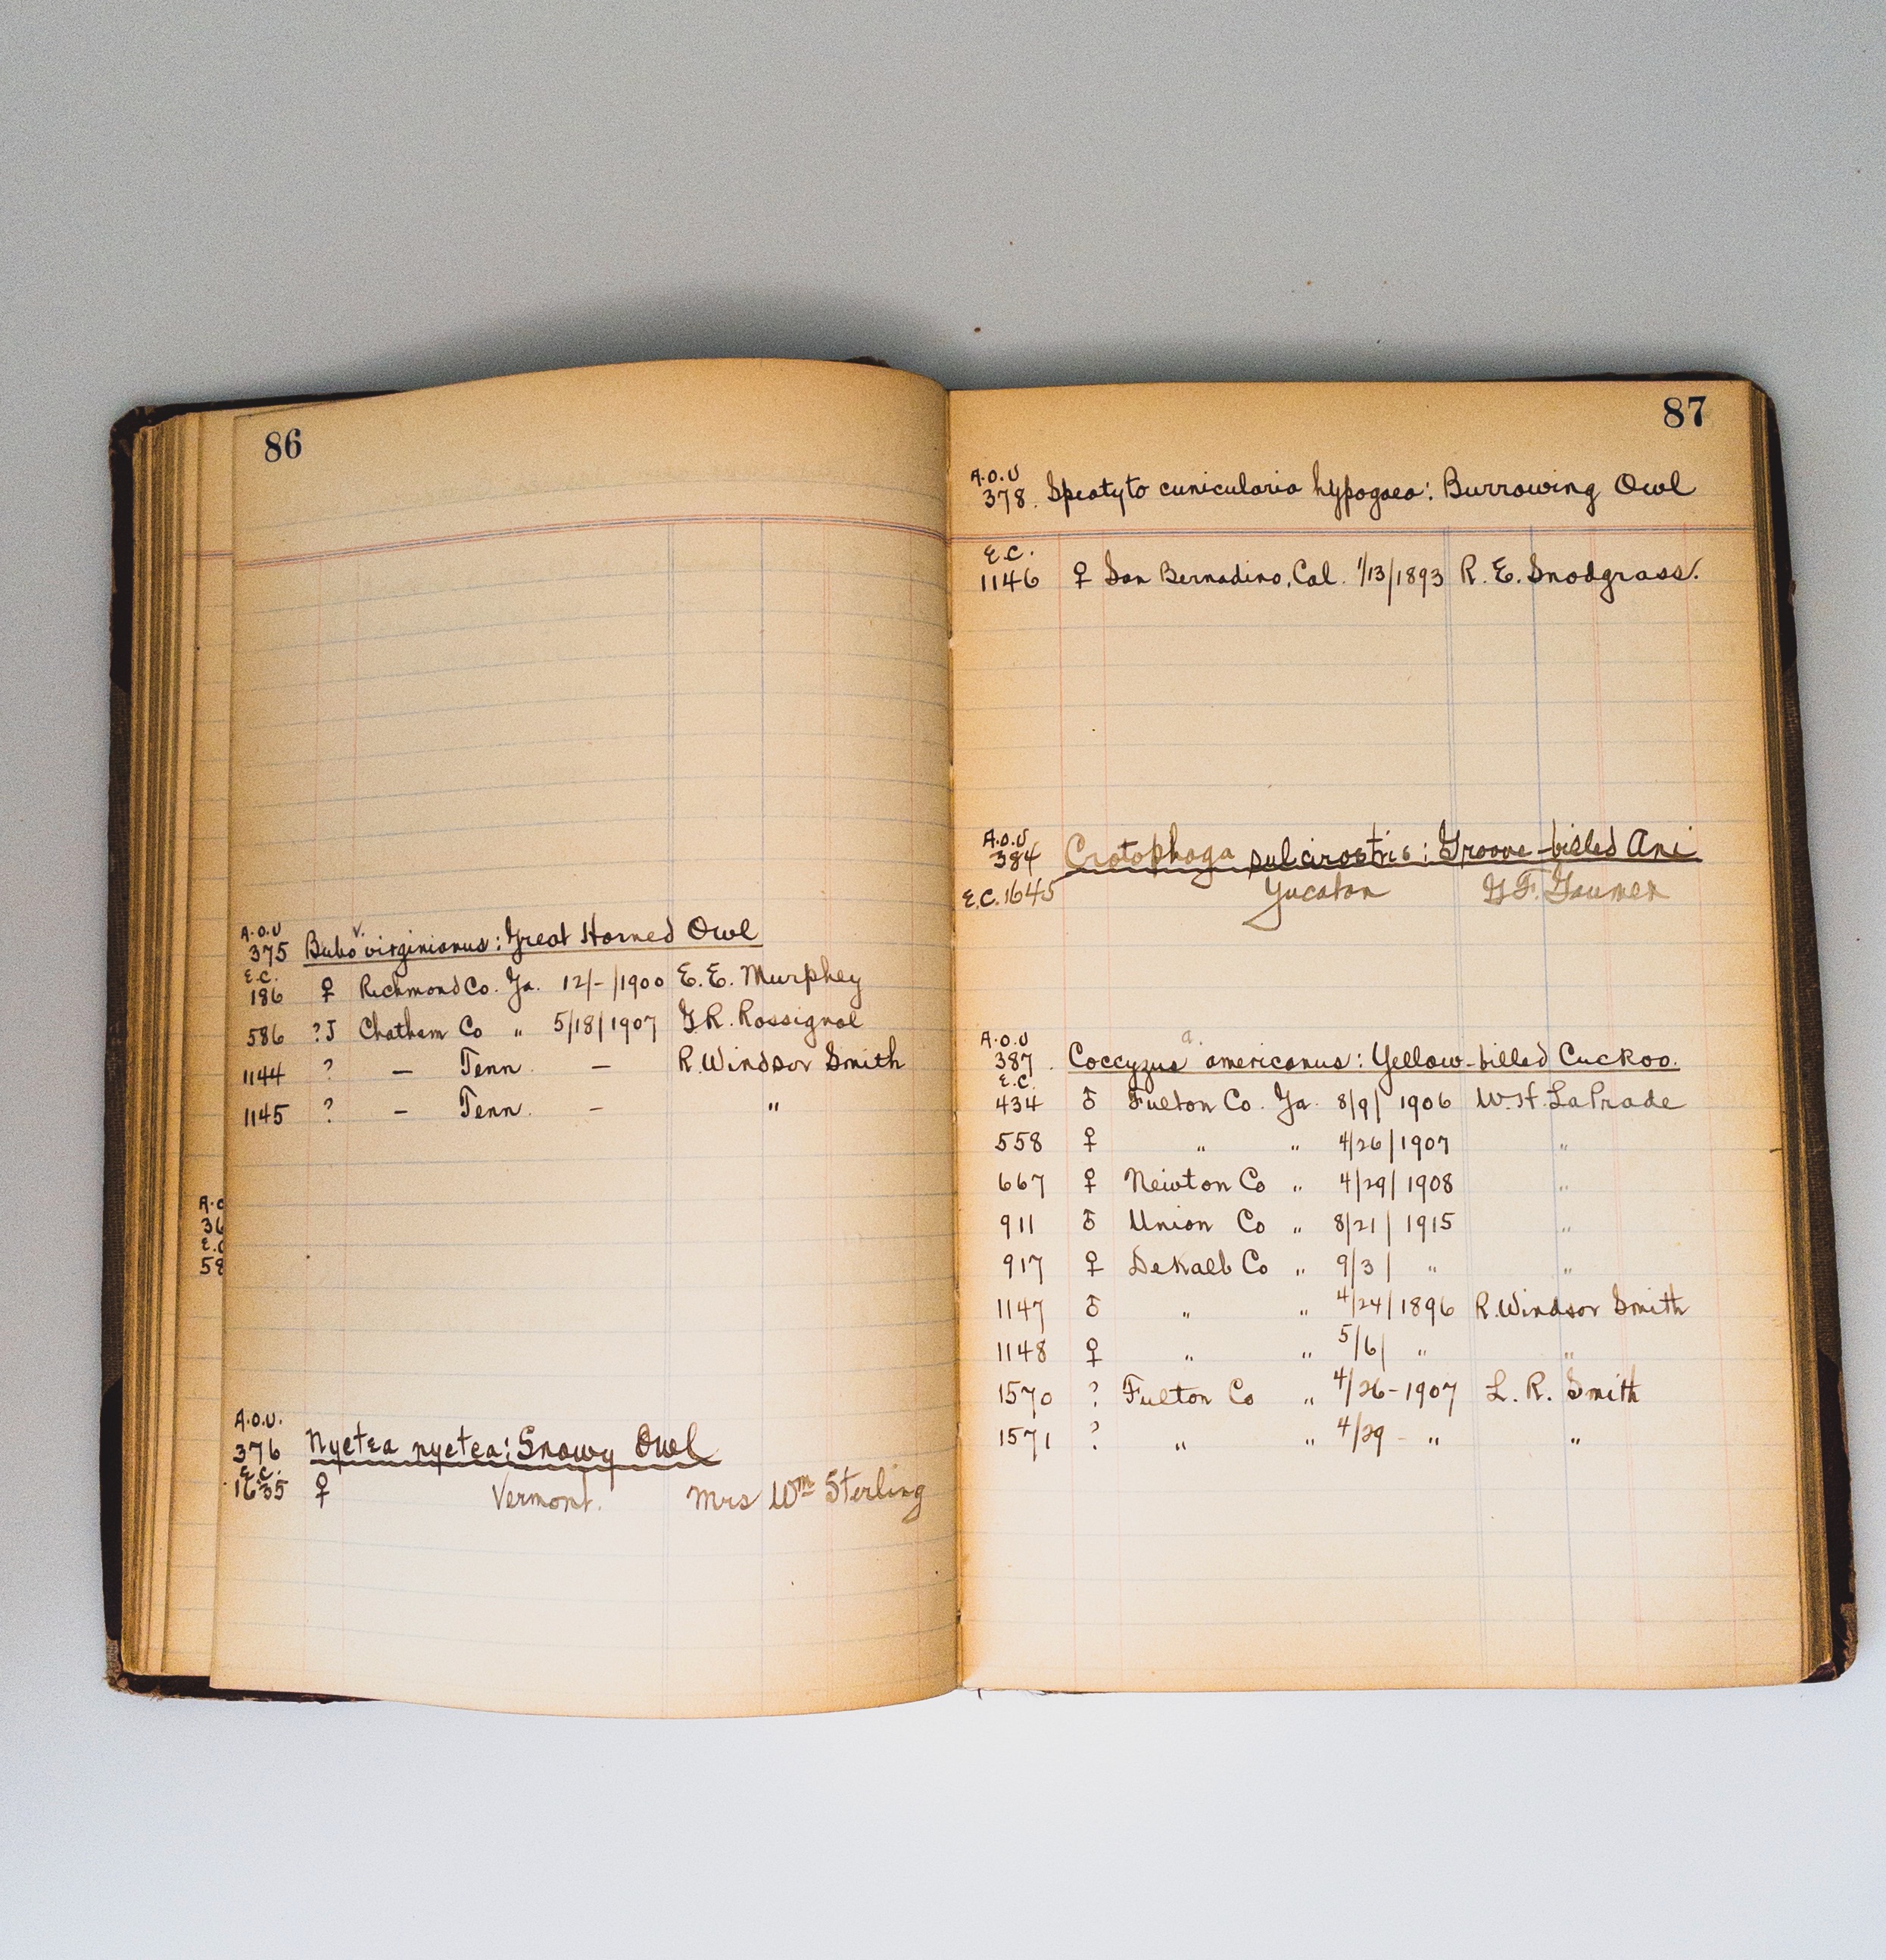 86
A.O.U
375 Bubo v. virginianus: Great Horned Owl
E.C.
186 ♀ Richmond Co. Ga. 12/-/1900 E. E. Murphey
586 ?J Chatham Co " 5/18/1907 G.R. Rossignol
1144 ? — Tenn. — R. Windsor Smith
1145 ? — Tenn. — "
A.O.U.
376 Nyctea nyctea: Snowy Owl
E.C.
1635 ♀ Vermont. Mrs Wm Sterling
A.O
36
E.C
58
87
A.O.U
378. Speotyto cunicularia hypogaea: Burrowing Owl
E.C.
1146 ♀ San Bernadino, Cal. 1/13/1893 R. E. Snodgrass.
A.O.U
384 Crotophaga sulcirostris: Groove-billed Ani
E.C. 1645 Yucatan G.F. Gaumer
A.O.U
387. Coccyzus a. americanus: Yellow-billed Cuckoo.
E.C.
434 ♂ Fulton Co. Ga. 8/9/1906 W. H. LaPrade
558 ♀ " " 4/26/1907 "
667 ♀ Newton Co " 4/29/1908 "
911 ♂ Union Co " 8/21/1915 "
917 ♀ DeKalb Co " 9/3/ " "
1147 ♂ " " 4/24/1896 R. Windsor Smith
1148 ♀ " " 5/6/ " "
1570 ? Fulton Co " 4/26-1907 L. R. Smith
1571 ? " " 4/29 - " "